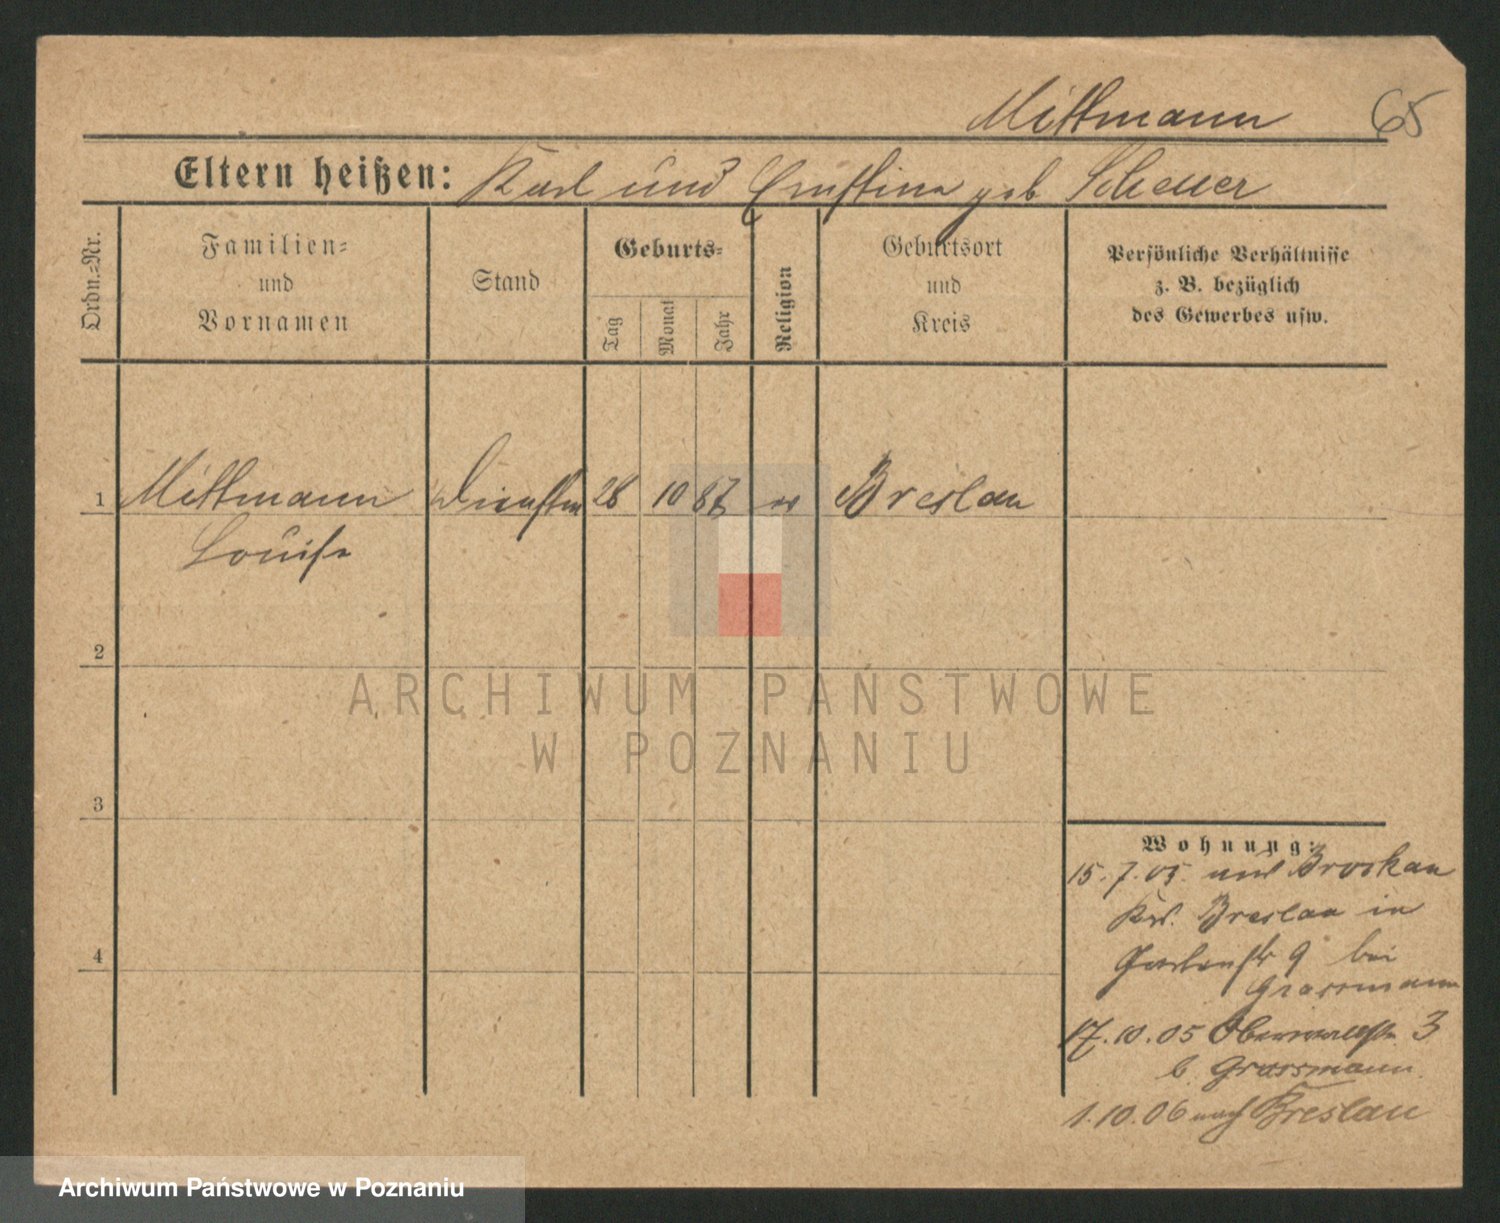 Mittmann 65
Eltern heißen: Karl und Ernstine geb Scheuer
Ordn.=Nr.
Familien=
und
Vornamen
Stand
Geburts=
Tag
Monat
Jahr
Religion
Geburtsort
und
Kreis
Persönliche Verhältnisse
z. B. bezüglich
des Gewerbes usw.
1 Mittmann 28 10 87 ev Breslau
Louise
2
3
4
Wohnung:
15.7.05. und Brockau
Krs. Breslau in
Gartenstr 9 bei
Grassmann
17.10.05 3
b. Grassmann
1.10.06 nach Breslau
ARCHIWUM PAŃSTWOWE
W POZNANIU
Archiwum Państwowe w Poznaniu